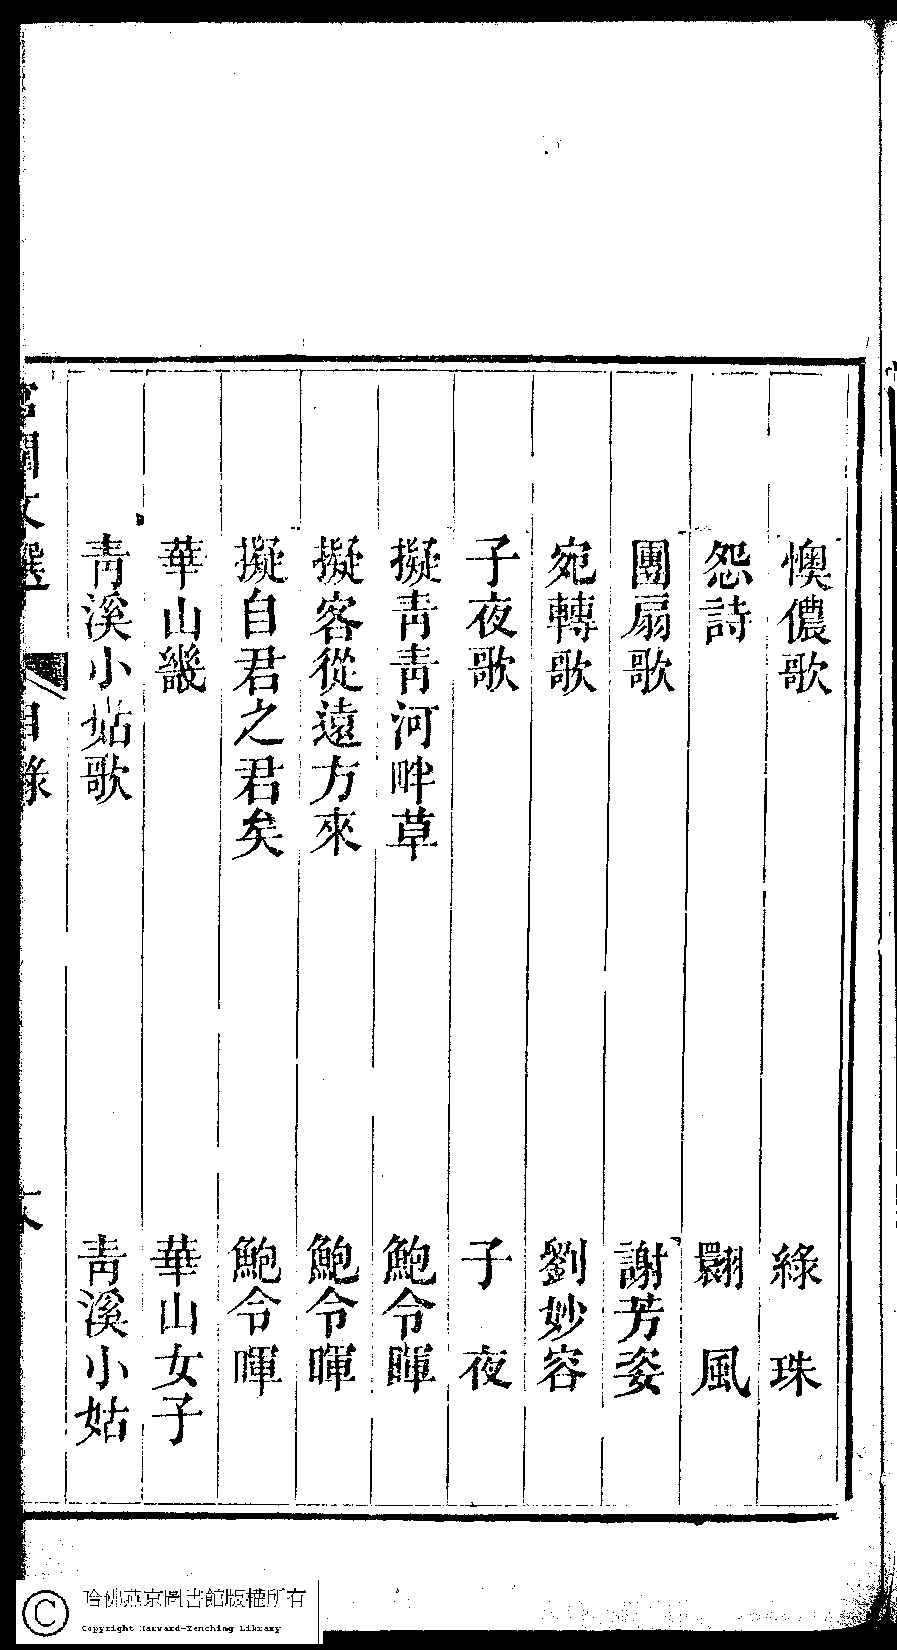 懊儂歌　綠珠
怨詩　翾風
團扇歌　謝芳姿
宛轉歌　劉妙容
子夜歌　子夜
擬靑靑河畔草　鮑令暉
擬客從遠方來　鮑令暉
擬自君之君矣　鮑令暉
華山畿　華山女子
靑溪小姑歌　靑溪小姑
宮閨文選　目錄
哈佛燕京圖書館版權所有
Copyright Harvard-Yenching Library